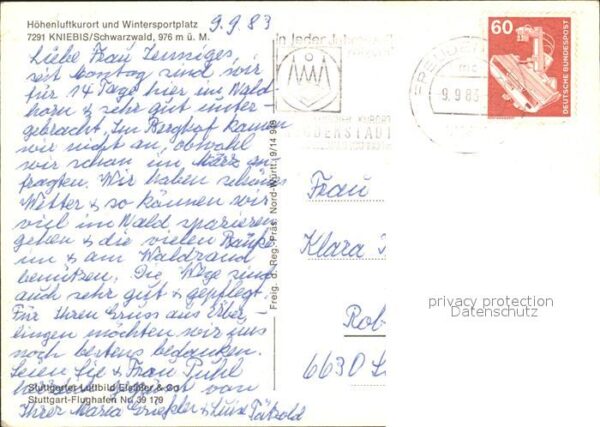 Höhenluftkurort und Wintersportplatz
7291 KNIEBIS/Schwarzwald, 976 m ü. M.
9.9.83
Liebe Frau Jenniges,
seit Montag sind wir
für 14 Tage hier im Wald
horn & sehr gut unter-
gebracht. Im Berghof kamen
wir nicht an, obwohl
wir schon im März an
fragten. Wir haben schönes
Wetter & so können wir
viel im Wald spazieren
gehen & die vielen Bänke
im & am Waldrand
benützen. Die Wege sind
auch sehr gut & gepflegt.
Für Ihren Gruss aus Über-
lingen möchten wir uns
noch bestens bedanken.
Seien Sie & Frau Puhl
gegrüsst von
Ihrer Maria & Luise Pätzold
Stuttgarter Luftbild Elsäßer & Co
Stuttgart-Flughafen No 39 179
Freig. d. Reg. Präs. Nord-Württ. (9/14 949
in jeder
FREUDENSTADT
9.9.83
60
DEUTSCHE BUNDESPOST
Frau
Klara
Rob
6630
privacy protection
Datenschutz